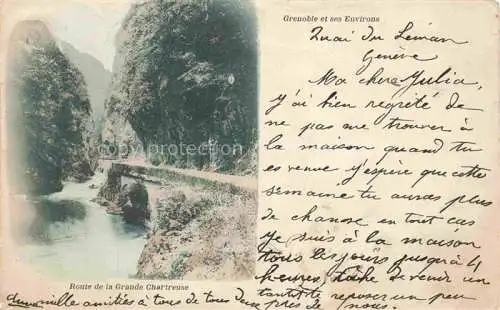 Grenoble et ses Environs
Quai du Léman
Genève
Ma chère Julia,
j'ai bien regretté de
ne pas me trouver à
la maison quand tu
es venue j'espère que cette
semaine tu auras plus
de chance en tout cas
je suis à la maison
tous les jours jusqu'à 4
heures, tâche de venir un
tantôt te reposer un peu
près de nous.
mille amitiés à tous de tous
Route de la Grande Chartreuse
protecphoto